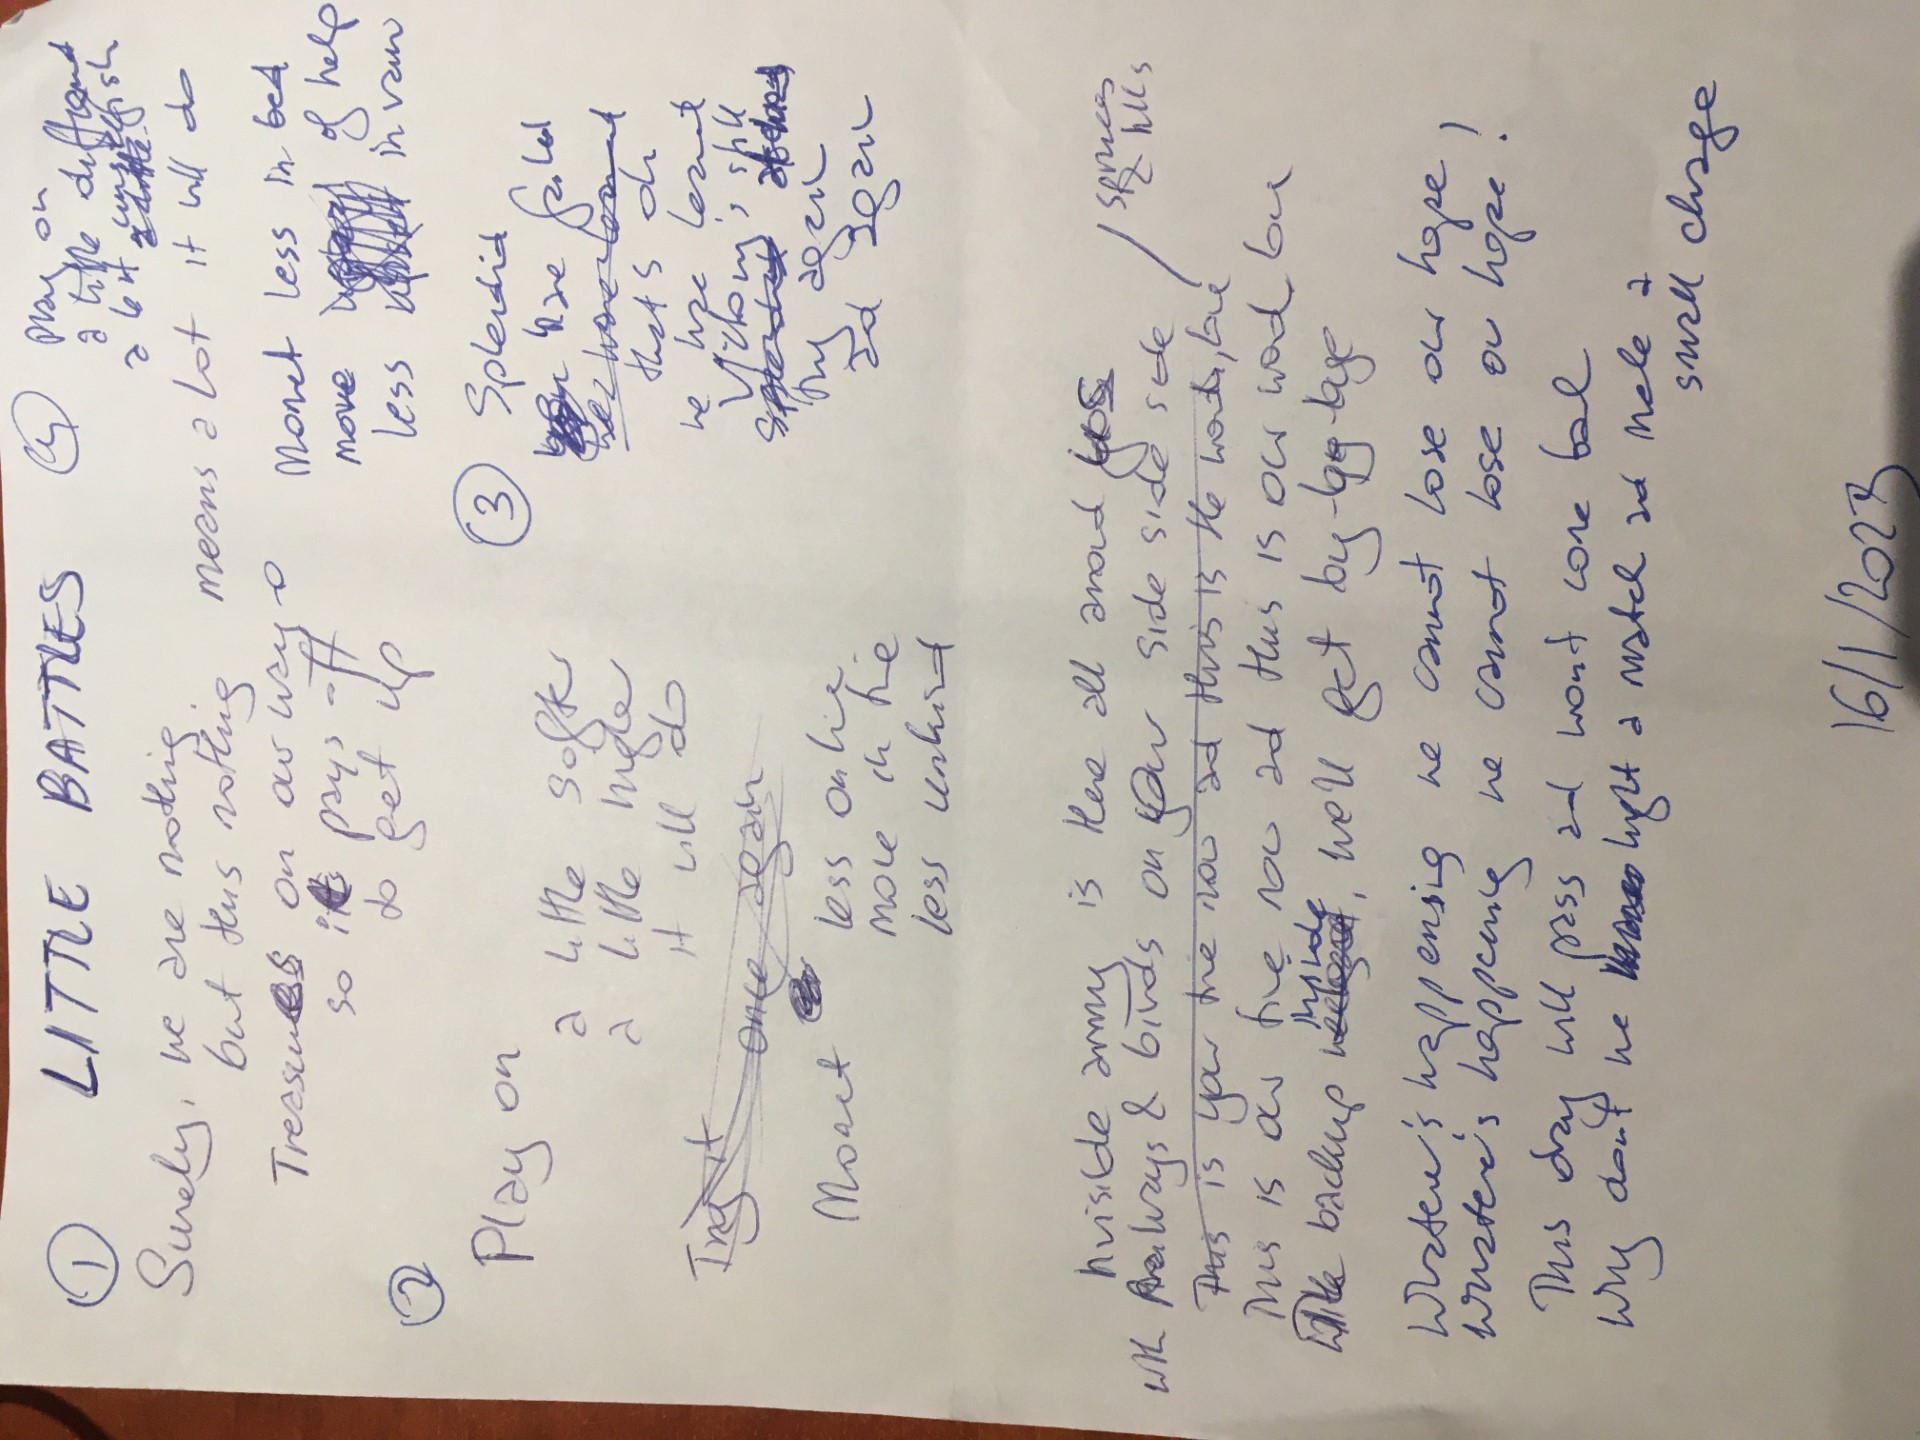 ① LITTLE BATTLES
Surely, we are nothing
but this nothing means a lot it will do
Treasures on our way o
so it's pays off
do get up
②
Play on
a little softer
a little higher
it will do
Try it once again
Moant less on line
more in line
less unkind
④ play on
a little different
a bit unselfish
Moant less in bed
more of help
less in vain
③ Splendid
we have failed
we have learnt
that's ok
we have learnt
Victory's still
try again
and again
Invisible army is here all around you
with Always & birds on your side side side / spruces & hills
This is your time now and this is the world, love
This is our time now and this is our world love
Little backup inside, we'll get by-by-bye
Whatever's happening we cannot lose our hope
Whatever's happening we cannot lose our hope!
This day will pass and won't come back
Why don't we light a match and make a
small change
16/1/2023